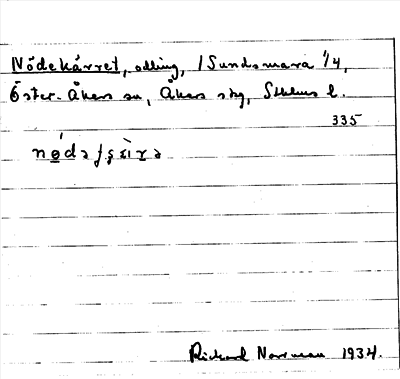 Nödekärret, odling, /Sundsmara 1/4,
Öster-Åkers sn, Åkers skg, Sthlms l.
335
Rickard Norrman 1934.